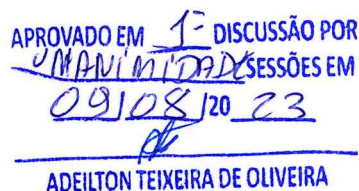 APROVADO EM 1ª DISCUSSÃO POR
UNANIMIDADE SESSÕES EM
09/08/2023
ADEILTON TEIXEIRA DE OLIVEIRA